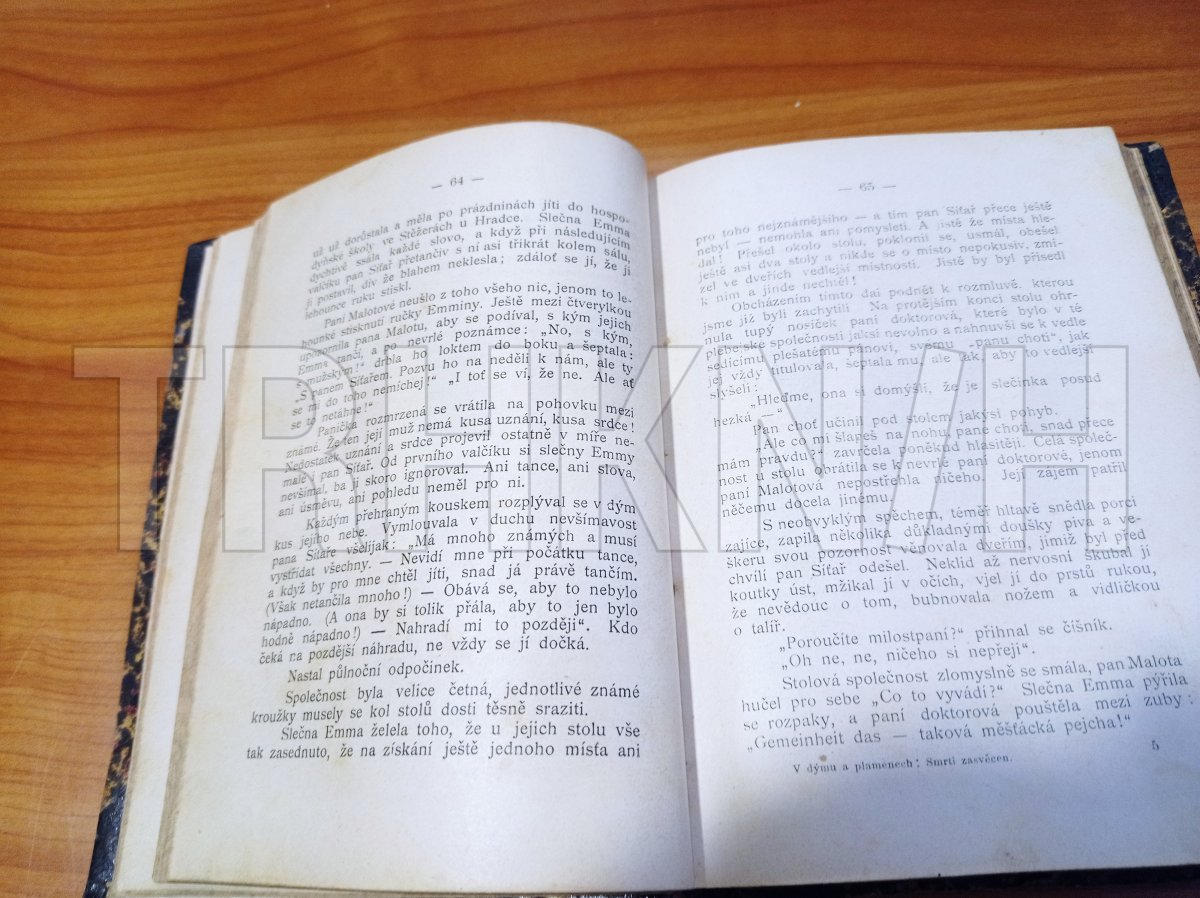 — 64 —
už už dorůstala a měla po prázdninách jíti do hospo-
dyňské školy ve Stěžerách u Hradce. Slečna Emma
dychtivě ssála každé slovo, a když při následujícím
valčíku pan Síťař přetančiv s ní asi třikrát kolem sálu,
ji postavil, div že blahem neklesla; zdáloť se jí, že jí
lehounce ruku stiskl.
Paní Malotové neušlo z toho všeho nic, jenom to le-
hounké stisknutí ručky Emminy. Ještě mezi čtverylkou
upozornila pana Malotu, aby se podíval, s kým jejich
Emma tančí, a po nevrlé poznámce: „No, s kým,
s mužským!" drbla ho loktem do boku a šeptala:
„S panem Síťařem. Pozvu ho na neděli k nám, ale ty
se mi do toho nemíchej!" „I toť se ví, že ne. Ale ať
se to netáhne!"
Panička rozmrzená se vrátila na pohovku mezi
známé. Že ten její muž nemá kusa uznání, kusa srdce!
Nedostatek uznání a srdce projevil ostatně v míře ne-
malé i pan Síťař. Od prvního valčíku si slečny Emmy
nevšímal, ba ji skoro ignoroval. Ani tance, ani slova,
ani úsměvu, ani pohledu neměl pro ni.
Každým přehraným kouskem rozplýval se v dým
kus jejího nebe. Vymlouvala v duchu nevšímavost
pana Síťaře všelijak: „Má mnoho známých a musí
vystřídat všechny. — Nevidí mne při počátku tance,
a když by pro mne chtěl jíti, snad já právě tančím.
(Však netančila mnoho!) — Obává se, aby to nebylo
nápadno. (A ona by si tolik přála, aby to jen bylo
hodně nápadno!) — Nahradí mi to později". Kdo
čeká na pozdější náhradu, ne vždy se jí dočká.
Nastal půlnoční odpočinek.
Společnost byla velice četná, jednotlivé známé
kroužky musely se kol stolů dosti těsně sraziti.
Slečna Emma želela toho, že u jejich stolu vše
tak zasednuto, že na získání ještě jednoho místa ani
— 65 —
pro toho nejznámějšího — a tím pan Síťař přece ještě
nebyl — nemohla ani pomysleti. A jistě že místa hle-
dal! Přešel okolo stolu, poklonil se, usmál, obešel
ještě asi dva stoly a nikde se o místo nepokusiv, zmi-
zel ve dveřích vedlejší místnosti. Jistě by byl přisedl
k nim a jinde nechtěl!
Obcházením tímto dal podnět k rozmluvě, kterou
jsme již byli zachytili. Na protějším konci stolu ohr-
nula tupý nosíček paní doktorová, které bylo v té
plebejské společnosti jaksi nevolno a nahnuvši se k vedle
sedícímu plešatému pánovi, svému „panu choti", jak
jej vždy titulovala, šeptala mu, ale tak, aby to vedlejší
slyšeli:
„Hleďme, ona si domýšlí, že je slečinka posud
hezká —"
Pan choť učinil pod stolem jakýsi pohyb.
„Ale co mi šlapeš na nohu, pane choti, snad přece
mám pravdu?" zavrčela poněkud hlasitěji. Celá společ-
nost u stolu obrátila se k nevrlé paní doktorové, jenom
paní Malotová nepostřehla ničeho. Její zájem patřil
něčemu docela jinému.
S neobvyklým spěchem, téměř hltavě snědla porci
zajíce, zapila několika důkladnými doušky piva a ve-
škeru svou pozornost věnovala dveřím, jimiž byl před
chvílí pan Síťař odešel. Neklid až nervosní škubal jí
koutky úst, mžikal jí v očích, vjel jí do prstů rukou,
že nevědouc o tom, bubnovala nožem a vidličkou
o talíř.
„Poroučíte milostpaní?" přihnal se číšník.
„Oh ne, ne, ničeho si nepřeji".
Stolová společnost zlomyslně se smála, pan Malota
hučel pro sebe „Co to vyvádí?" Slečna Emma pýřila
se rozpaky, a paní doktorová pouštěla mezi zuby:
„Gemeinheit das — taková měšťácká pejcha!"
V dýmu a plamenech; Smrti zasvěcen.
5
TRHKNIH